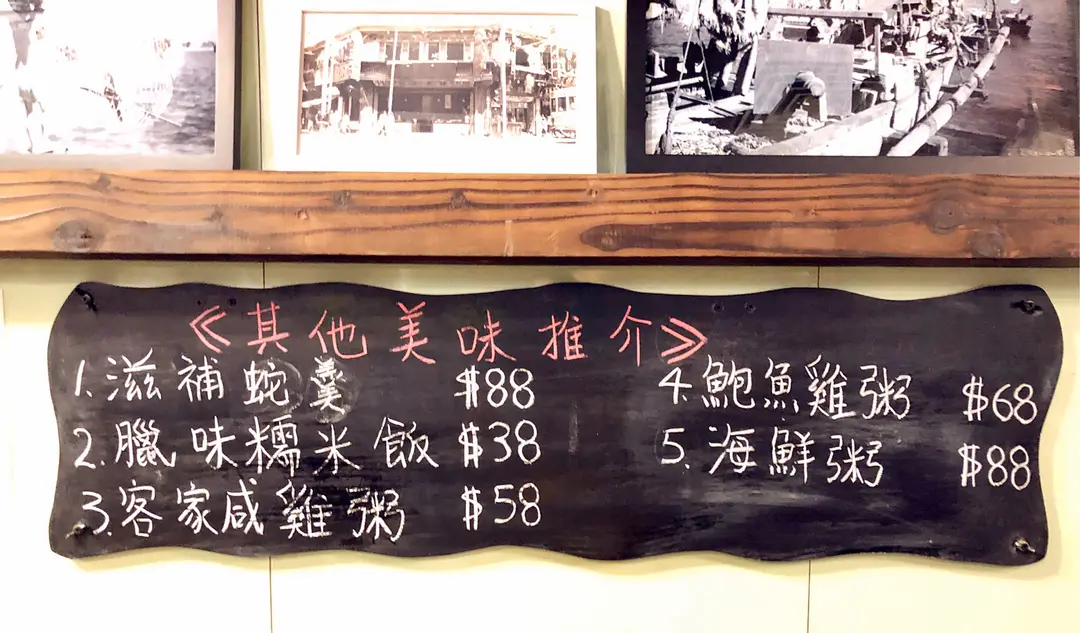 《其他美味推介》
1.滋補蛇羹 $88
2.臘味糯米飯 $38
3.客家咸雞粥 $58
4.鮑魚雞粥 $68
5.海鮮粥 $88